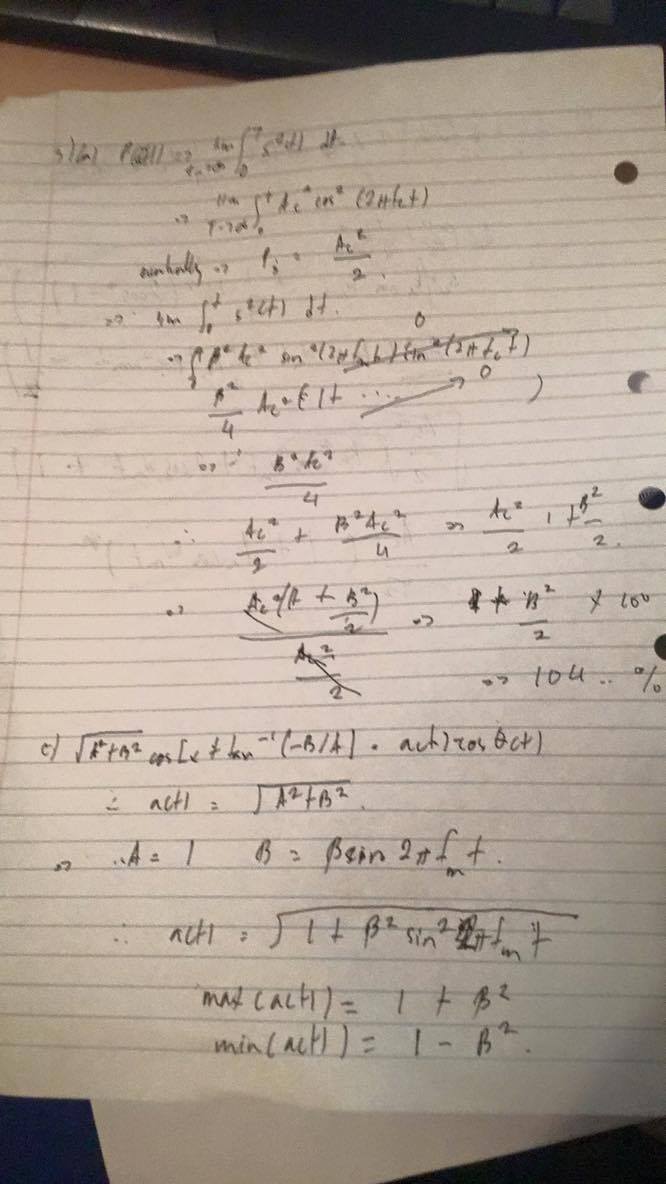 lim ∫₀ᵀ s²(t) dt.
⇒ lim T→∞ ∫₀ᵗ Ac² cos² (2πfct)
⇒ = Ac²/2.
⇒ lim ∫₀ᵗ s²(t) dt.
⇒ ∫ β² Ac² sin²(2πfmt) sin²(2πfct) 0
β²/4 Ac² (1+ ... → 0 )
⇒ β²Ac²/4
∴ Ac²/2 + β²Ac²/4 ⇒ Ac²/2 1 + β²/2.
⇒ Ac²(1 + β²/2) / Ac²/2 ⇒ 1 + β²/2 × 100
⇒ 104 .. %
c) √A²+B² cos[x + tan⁻¹(-B/A] = a(t) cos θ(t)
∴ a(t) = √A²+B².
⇒ ∴ A = 1 B = βsin 2πfmt.
∴ a(t) = √1 + β² sin² 2πfmt
max(a(t)) = 1 + β²
min(a(t)) = 1 - β².